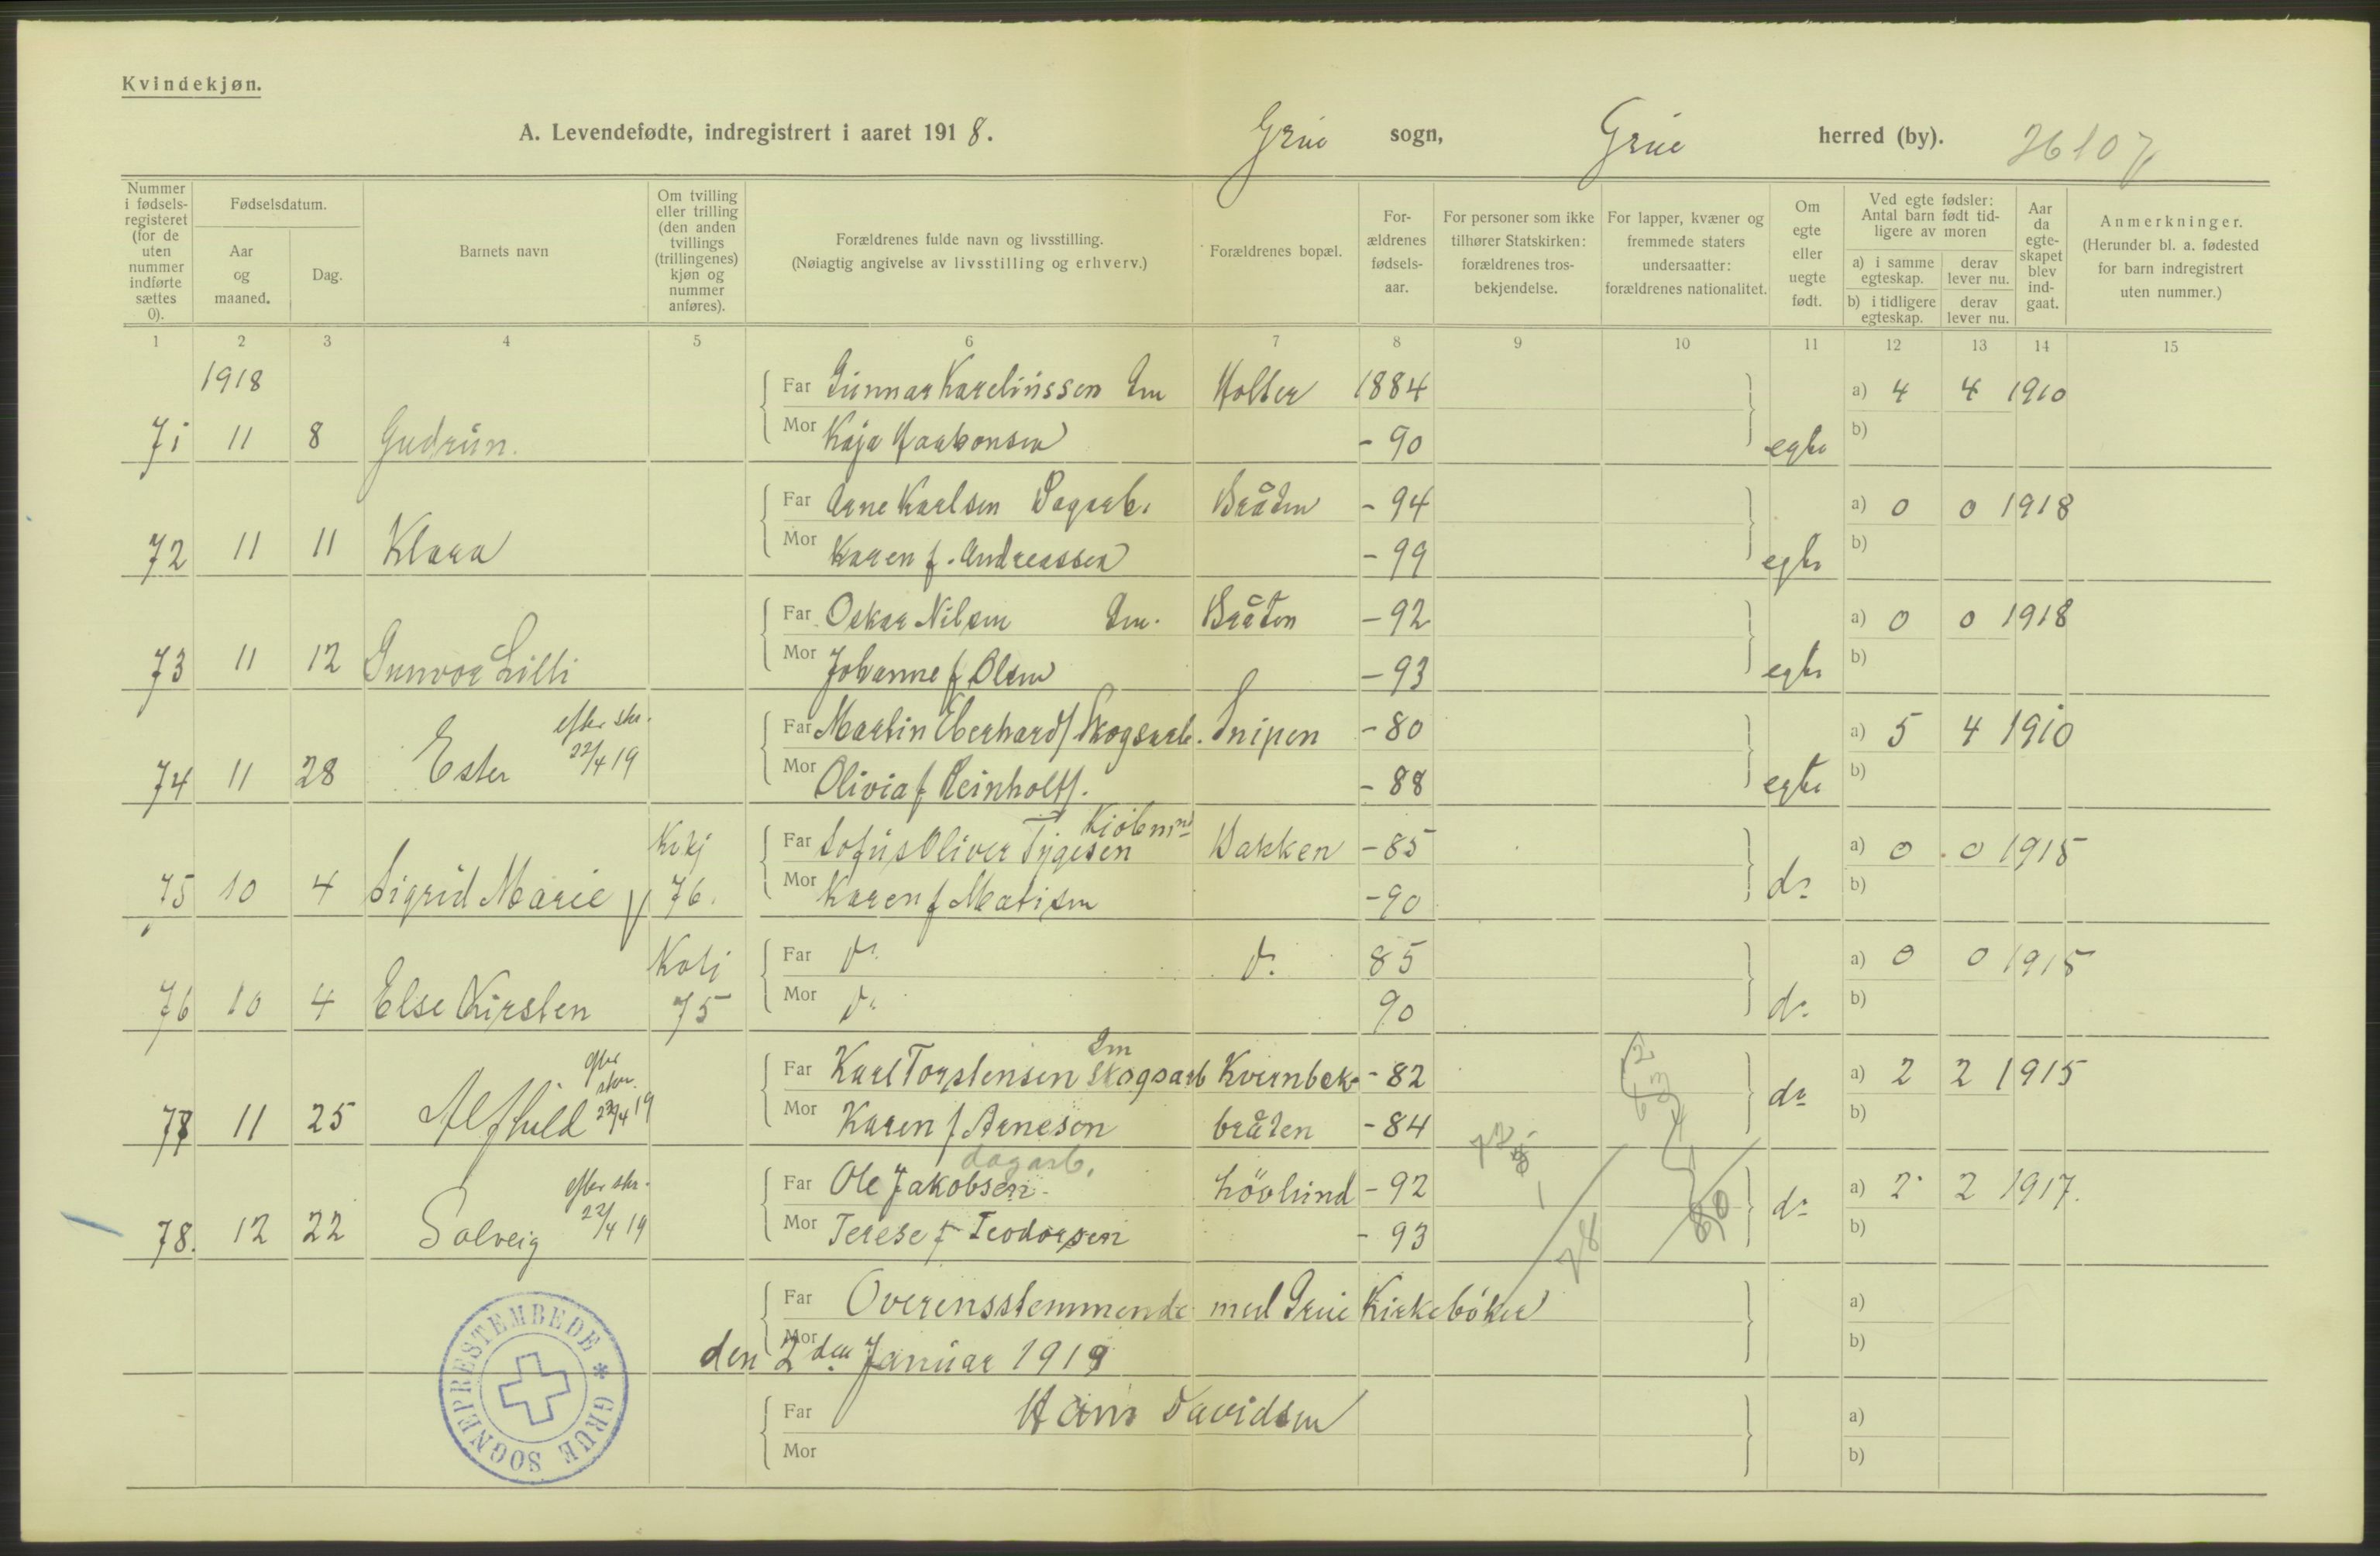 Kvindekjøn.
A. Levendefødte, indregistrert i aaret 1918. Grue sogn, Grue herred (by). 26107
Nummer i fødsels-registeret (for de uten nummer indførte sættes 0).
Fødselsdatum.
Aar og maaned.
Dag.
Barnets navn
Om tvilling eller trilling (den anden tvillings (trillingenes) kjøn og nummer anføres).
Forældrenes fulde navn og livsstilling.
(Nøiagtig angivelse av livsstilling og erhverv.)
Forældrenes bopæl.
For-ældrenes fødsels-aar.
For personer som ikke tilhører Statskirken: forældrenes tros-bekjendelse.
For lapper, kvæner og fremmede staters undersaatter: forældrenes nationalitet.
Om egte eller uegte født.
Ved egte fødsler: Antal barn født tid-ligere av moren
a) i samme egteskap.
derav lever nu.
b) i tidligere egteskap.
derav lever nu.
Aar da egte-skapet blev ind-gaat.
Anmerkninger.
(Herunder bl. a. fødested for barn indregistrert uten nummer.)
1 2 3 4 5 6 7 8 9 10 11 12 13 14 15
1918
Far Gunnar Kareliussen Gm Holter 1884 a) 4 4 1910
71 11 8 Gudrun. Mor Kaja Haakonsen - 90 egte b)
Far Arne Karlsen Dagarb. Bråten - 94 a) 0 0 1918
72 11 11 Klara Mor Karen f. Andreassen - 99 egte b)
Far Oskar Nilsen Gm. Bråten - 92 a) 0 0 1918
73 11 12 Gunvor Lilli Mor Johanne f Olsen - 93 egte b)
efter skr. 22/4 19
Far Martin Eberhard Skogsarb. Snipen - 80 a) 5 4 1910
74 11 28 Ester Mor Olivia f Reinholt - 88 egte b)
Kvkj
Far Sofus Oliver Tygesen Kjöbmnd Bakken - 85 a) 0 0 1915
75 10 4 Sigrid Marie 76. Mor Karen f Matisen - 90 do b)
Kvkj
Far do do 85 a) 0 0 1915
76 10 4 Else Kirsten 75 Mor do 90 do b)
efter skr. 22/4 19
Far Karl Torstensen Gm Skogsarb Kvernbek- - 82 a) 2 2 1915
77 11 25 Alfhild Mor Karen f Arnesen bråten - 84 do b)
efter skr. 22/4 19
dagarb.
Far Ole Jakobsen Lövlund - 92 a) 2 2 1917.
78. 12 22 Solveig Mor Terese f Teodorsen - 93 do b)
78
80
Far Overensstemmende med Grue Kirkebøker a)
Mor den 2den Januar 1919 b)
Far Hans Davidsen a)
Mor b)
GRUE SOGNEPRESTEMBEDE *